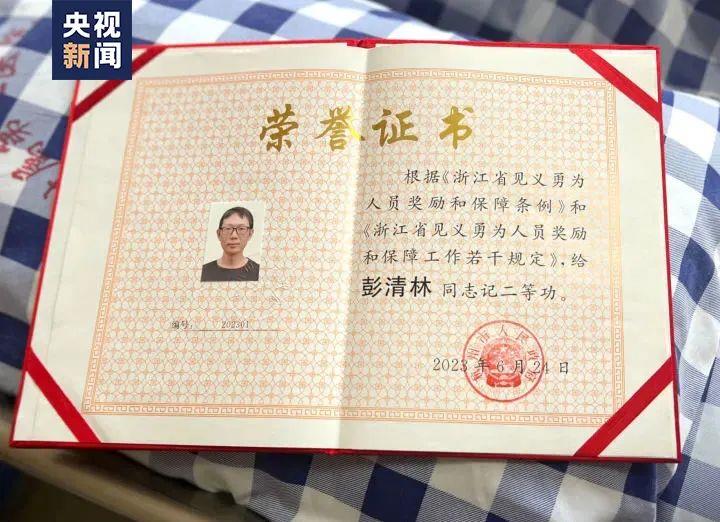 央视
新闻
荣誉证书
编号： 202301
根据《浙江省见义勇为
人员奖励和保障条例》和
《浙江省见义勇为人员奖励
和保障工作若干规定》，给
彭清林 同志记二等功。
2023 年 6 月 24 日